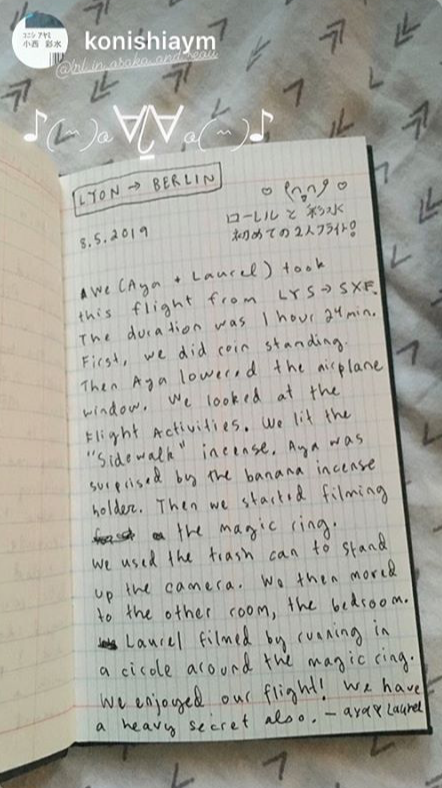 コニシ アヤミ
小西 彩水
konishiaym
LYON → BERLIN
8.5.2019
ローレル と 彩水
初めての2人フライト!
We (Aya + Laurel) took
this flight from LYS → SXF.
The duration was 1 hour 24 min.
First, we did coin standing.
Then Aya lowered the airplane
window. We looked at the
Flight Activities. We lit the
"Sidewalk" incense. Aya was
surprised by the banana incense
holder. Then we started filming
the magic ring.
We used the trash can to stand
up the camera. We then moved
to the other room, the bedroom.
Laurel filmed by running in
a circle around the magic ring.
We enjoyed our flight! We have
a heavy secret also. — aya & Laurel